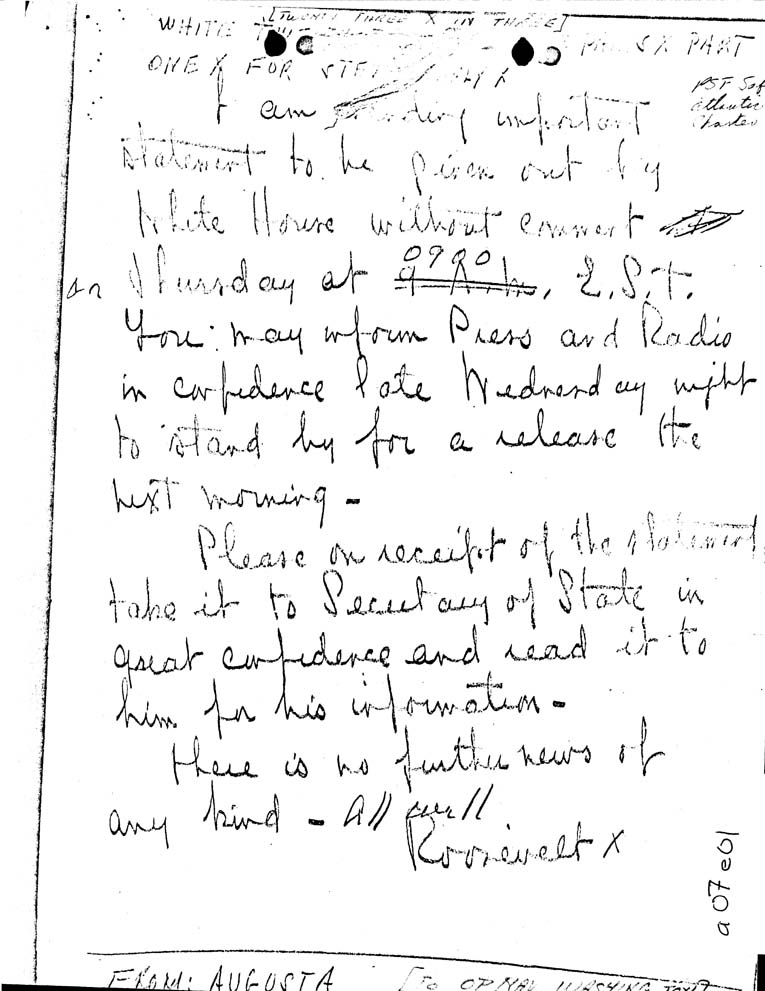 [TWENTY THREE X IN THREE]
WHITE PART
ONE X FOR
PSF Saf
Atlantic
Charter
I am sending important
statement to be given out by
White House without comment
on Thursday at 0900 9 A.M., E.S.T.
You may inform Press and Radio
in confidence late Wednesday night
to stand by for a release the
next morning -
Please on receipt of the statement
take it to Secretary of State in
great confidence and read it to
him for his information -
There is no further news of
any kind - All well
Roosevelt X
a07e01
FROM: AUGUSTA [TO OPNAV WASHINGTON